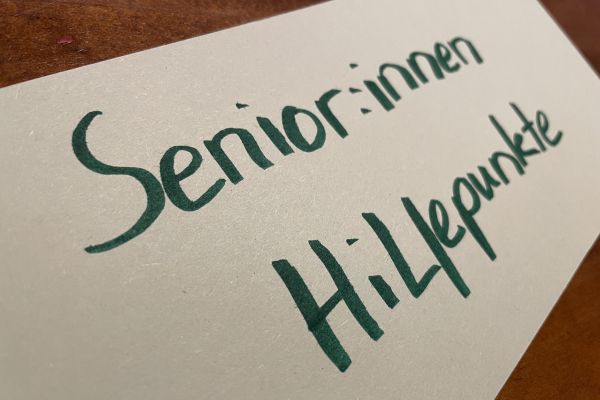 Senior:innen
Hilfepunkte